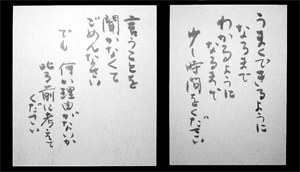 うまくできるように
なるまで
わかるように
なるまで
少し時間をください
言うことを
聞かなくて
ごめんなさい
でも 何か理由がないか
叱る前に考えて
ください